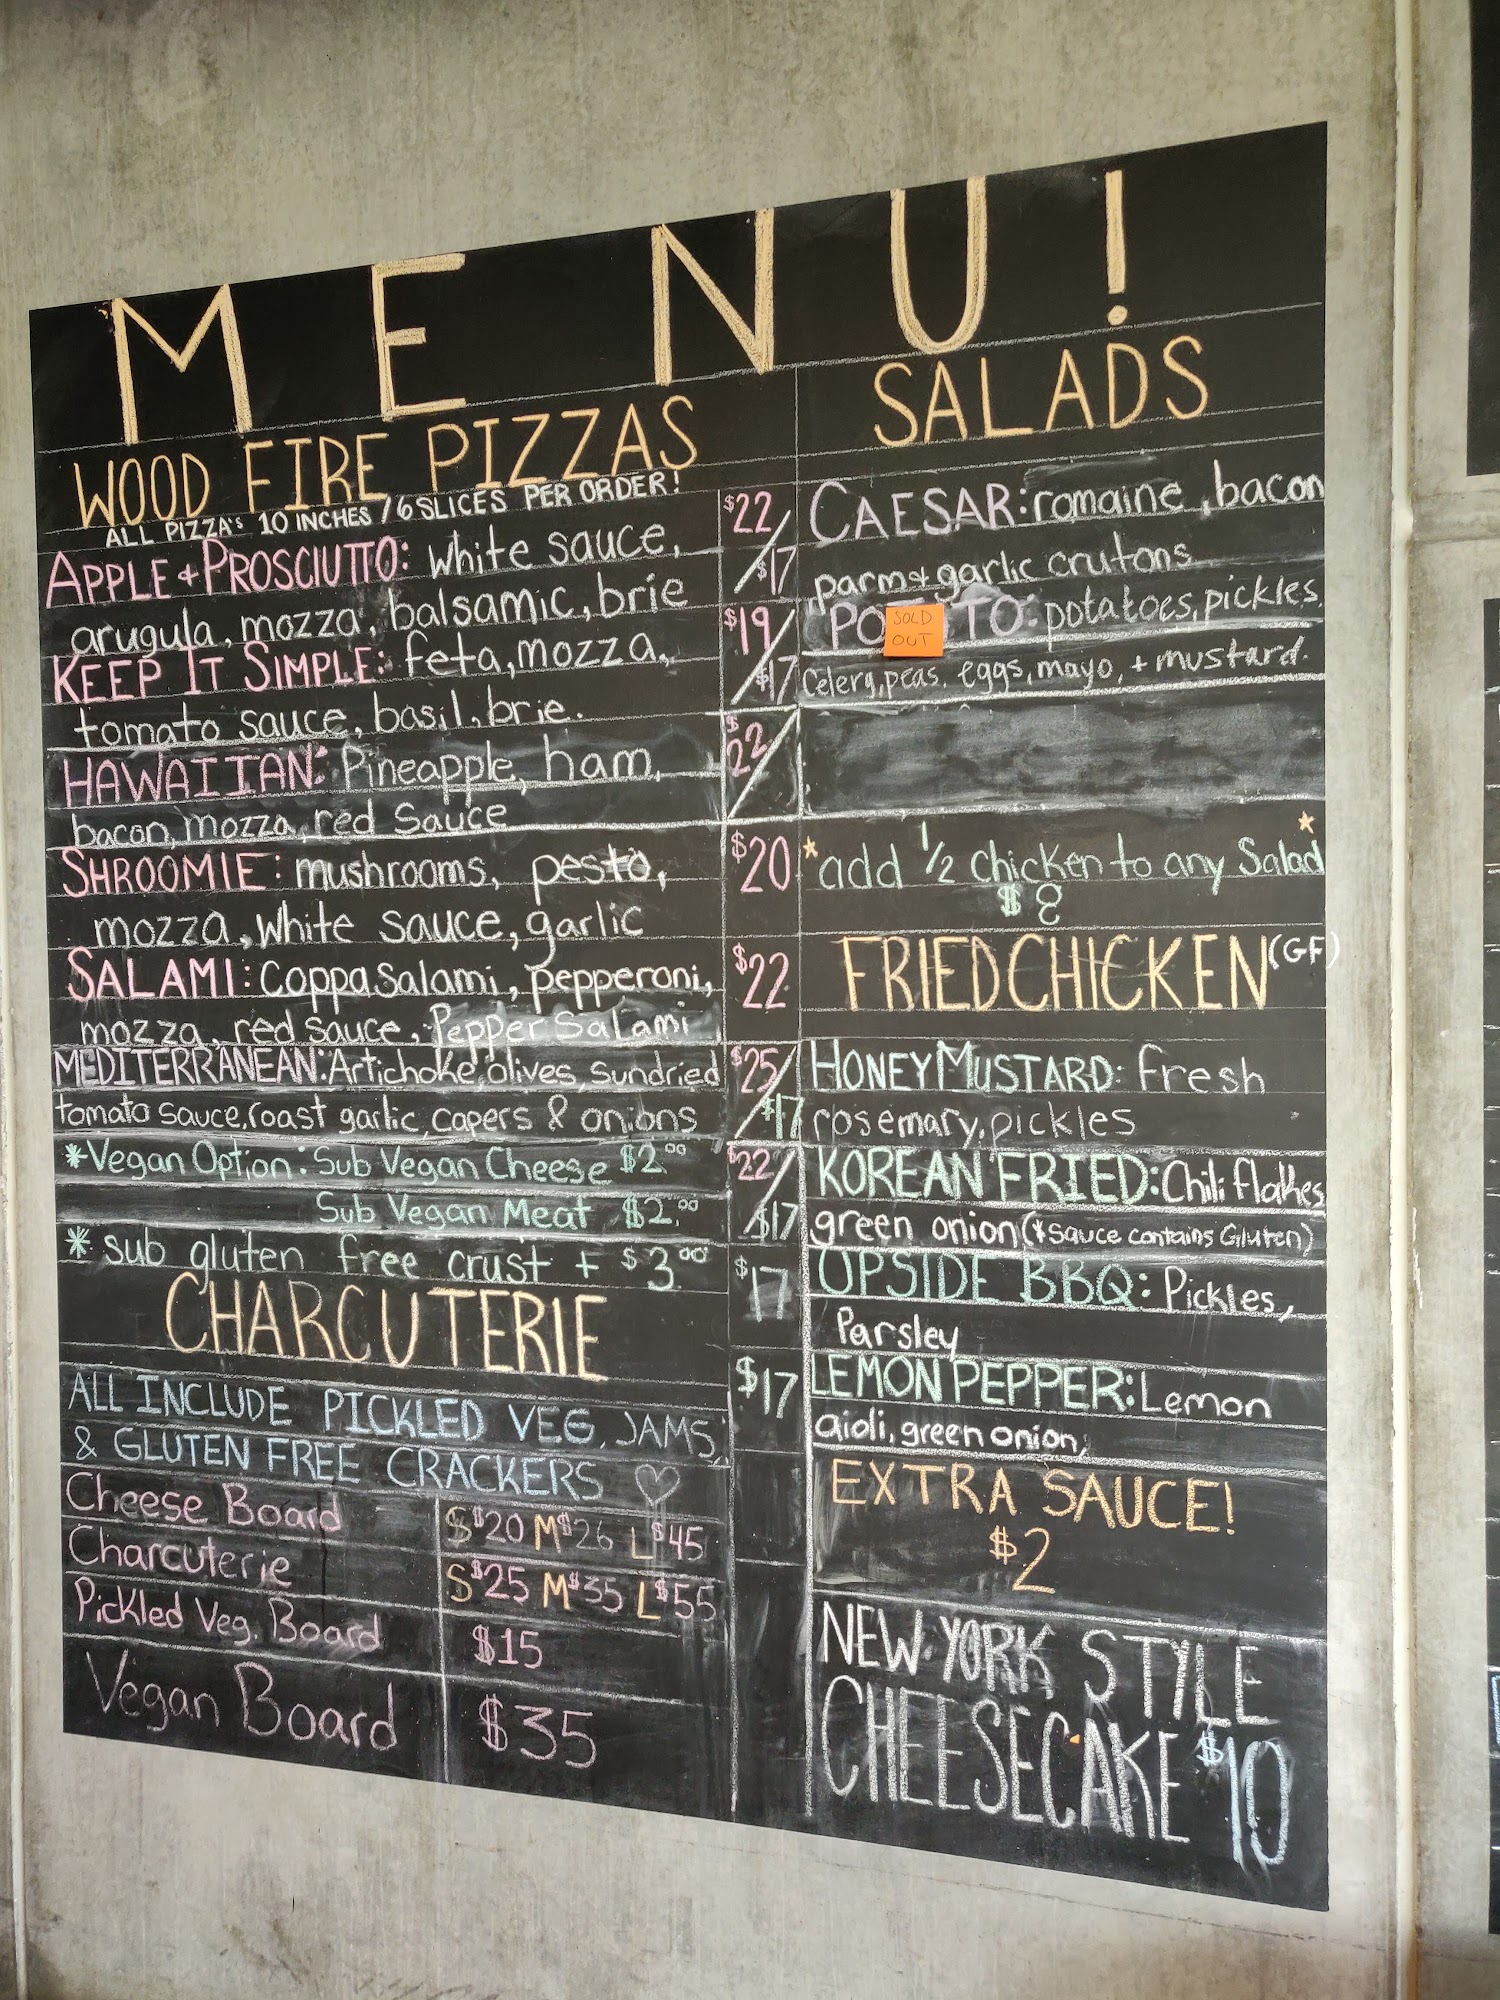 MENU!
WOOD FIRE PIZZAS
ALL PIZZA'S 10 INCHES /6 SLICES PER ORDER!
APPLE + PROSCIUTTO: white sauce, $22
arugula, mozza, balsamic, brie
KEEP IT SIMPLE: feta, mozza, $19
tomato sauce, basil, brie.
HAWAIIAN: Pineapple, ham, $22
bacon, mozza, red Sauce
SHROOMIE: mushrooms, pesto, $20
mozza, white sauce, garlic
SALAMI: Coppa Salami, pepperoni, $22
mozza, red sauce, Pepper Salami
MEDITERRANEAN: Artichoke, olives, sundried $25
tomato sauce, roast garlic, capers & onions
*Vegan Option: Sub Vegan Cheese $2.00
Sub Vegan Meat $2.00
* sub gluten free crust + $3.00
CHARCUTERIE
ALL INCLUDE PICKLED VEG, JAMS,
& GLUTEN FREE CRACKERS ♡
Cheese Board S $20 M $26 L $45
Charcuterie S $25 M $35 L $55
Pickled Veg. Board $15
Vegan Board $35
SALADS
$17 CAESAR: romaine, bacon
parm + garlic crutons
$17 PO TO: potatoes, pickles,
SOLD
OUT
Celery, peas, eggs, mayo, + mustard.
*add 1/2 chicken to any Salad*
$8
FRIED CHICKEN (GF)
$17 HONEY MUSTARD: Fresh
rosemary, pickles
$22/$17 KOREAN FRIED: Chili flakes,
green onion (*Sauce contains Gluten)
$17 UPSIDE BBQ: Pickles,
Parsley
$17 LEMON PEPPER: Lemon
aioli, green onion,
EXTRA SAUCE!
$2
NEW YORK STYLE
CHEESECAKE $10